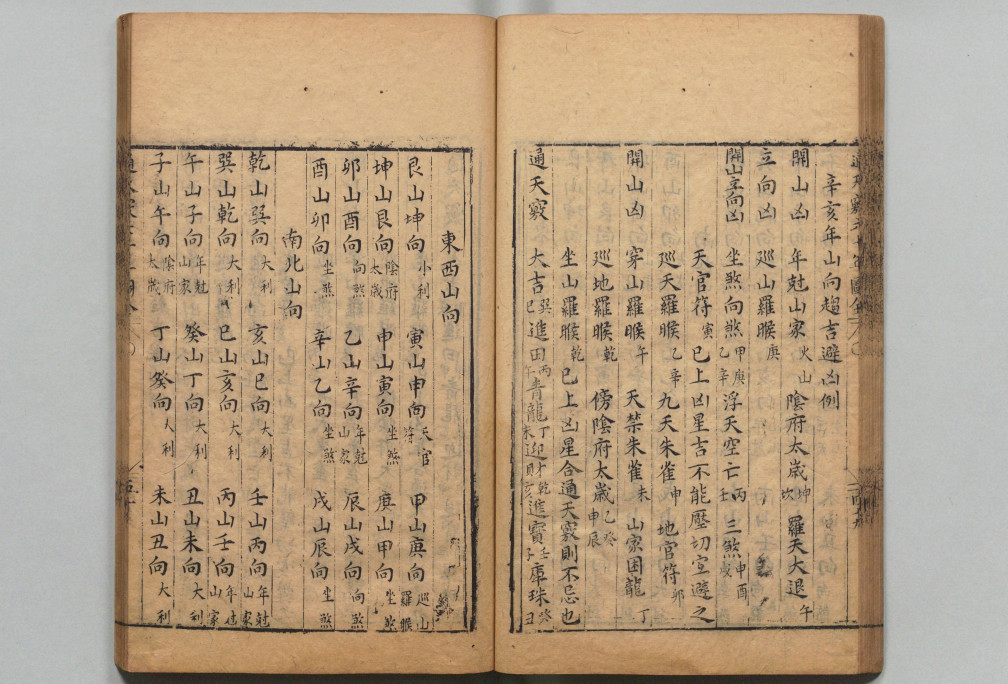 辛亥年山向趨吉避凶例
開山凶 年尅山家火山 陰府太歲坤坎 羅天大退午
立向凶 巡山羅㬋庚
開山立向凶 坐煞向煞甲庚乙辛 浮天空亡丙壬 三煞申酉戌
天官符寅 已上凶星吉不能壓切宜避之
巡天羅㬋乙辛 九天朱雀申 地官符卯
開山凶 穿山羅㬋午 天禁朱雀未 山家困龍丁
巡地羅㬋乾 傍陰府太歲乙癸申辰
坐山羅㬋乾 已上凶星合通天竅則不忌也
通天竅 大吉巽巳 進田丙午 青龍丁未 迎財乾亥 進寶壬子 庫珠癸丑
東西山向
艮山坤向小利 寅山申向天官符 甲山庚向巡山羅㬋
坤山艮向陰府太歲 申山寅向坐煞 庚山甲向坐煞
卯山酉向向煞 乙山辛向年尅山家 辰山戌向向煞
酉山卯向坐煞 辛山乙向坐煞 戌山辰向坐煞
南北山向
乾山巽向大利 亥山巳向大利 壬山丙向年尅山家
巽山乾向大利 巳山亥向大利 丙山壬向年尅山家
午山子向年尅山家 癸山丁向大利 丑山未向大利
子山午向陰府太歲 丁山癸向大利 未山丑向大利